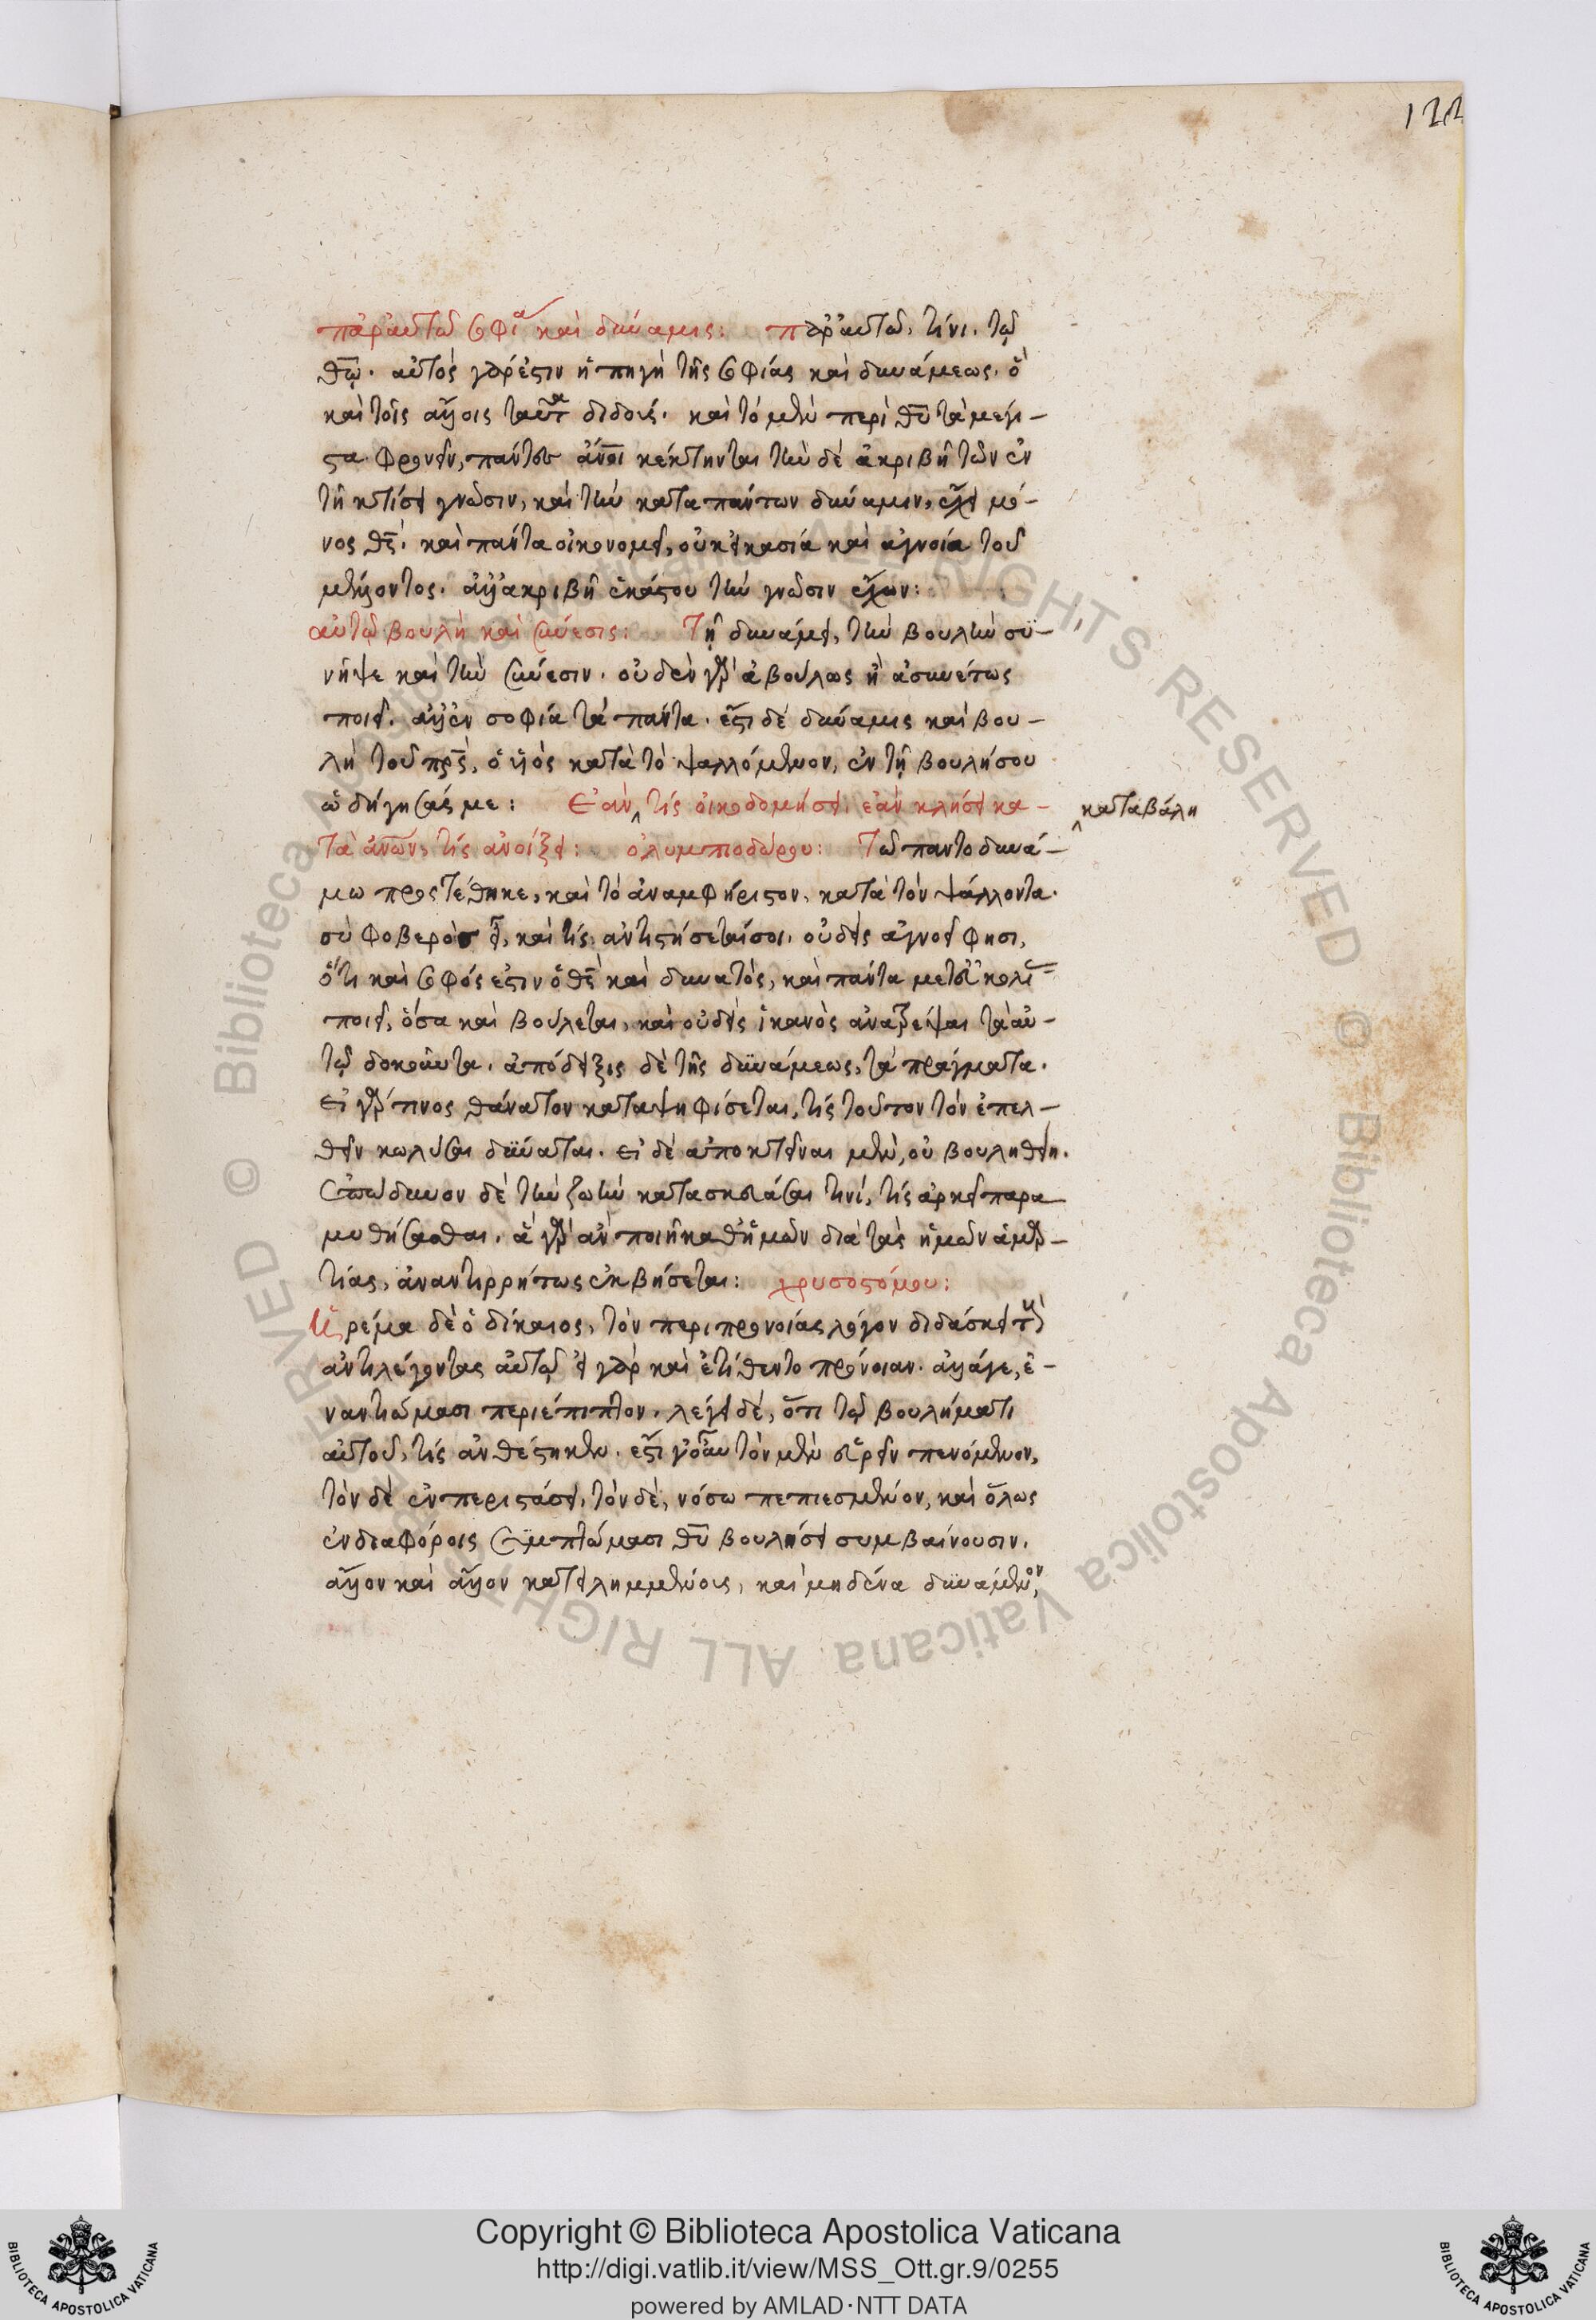 122
παρ' αυτῶ σοφία καὶ δύναμις: παρ' αυτῶ, τίνι. τῷ
θ̅ῷ. αὐτὸς γάρ ἐστιν ἡ πηγὴ τῆς σοφίας καὶ δυνάμεως. ὁ
καὶ τοῖς ἄλλοις ταῦτα διδούς. καὶ τὸ μὲν περὶ θ̅υ̅ τὰ μέγι-
στα φρονεῖν, πάντες ἄν̅οι κέκτηνται τὴν δὲ ἀκριβῆ τῶν ἐν
τῇ κτίσει γνῶσιν, καὶ τὴν κατα πάντων δύναμιν, ἔχει μό-
νος θ̅ς̅. καὶ πάντα οἰκονομεῖ, οὐκ εἰκασία καὶ αγνοία τοῦ
μέλλοντος. ἀλλ' ἀκριβῆ ἑκάστου τὴν γνῶσιν ἔχων:
αὐτῷ βουλὴ καὶ σύνεσις: Τῇ δυνάμει, τὴν βουλὴν συ-
νῆψε καὶ τὴν σύνεσιν. οὐδὲν γὰρ ἀβούλως ἢ ἀσυνέτως
ποιεῖ. ἀλλ' ἐν σοφία τὰ πάντα. ἔστι δὲ δύναμις καὶ βου-
λὴ τοῦ π̅ρ̅ς̅, ὁ υἱὸς κατὰ τὸ ψαλλόμενον, ἐν τῇ βουλῇ σου
ὡδήγησάς με: Ἐὰν τίς οἰκοδομήσει. ἐὰν κλήσει κα-
καταβάλη
τὰ ἀν̅ων, τίς ἀνοίξει: ὀλυμποδώρου: Τῶ παντοδυνά-
μω προστέθηκε, καὶ τὸ ἀναμφήριστον, κατὰ τὸν ψάλλοντα.
σὺ φοβερὸς εἶ, καὶ τίς ἀντιστήσεταί σοι. οὐδεὶς ἀγνοεῖ φησι,
ὅτι καὶ σοφός ἐστιν ὁ θ̅ς̅ καὶ δυνατός, καὶ πάντα
ποιεῖ, ὅσα καὶ βούλεται, καὶ οὐδεὶς ἱκανὸς ἀνατρέψαι τὰ αὐ-
τῷ δοκοῦντα. ἀπόδειξις δὲ τῆς δυνάμεως, τὰ πράγματα.
εἰ γάρ τινος θάνατον καταψηφίσεται, τίς τοῦτον τὸν ἐπελ-
θεῖν κωλύσαι δύναται. εἰ δὲ ἀποκτεῖναι μὲν, οὐ βουληθείη.
ἐπώδυνον δὲ τὴν ζωὴν κατασκευάσαι τινί, τίς ἀρκεῖ παρα
μυθήσασθαι. ἃ γὰρ ἂν ποιῇ καθ' ἡμῶν διὰ τὰς ἡμῶν ἁμαρ-
τίας, ἀναντιρρήτως ἐκβήσεται: χρυσοστόμου:
Ἠρέμα δὲ ὁ δίκαιος, τὸν περι προνοίας λόγον διδάσκει τοὺς
ἀντιλέγοντας αὐτῷ εἰ γὰρ καὶ ἐτίθεντο πρόνοιαν. ἀλλά γε, ἐ-
ναντιώμασι περιέπιπτον. λέγει δέ, ὅτι τῷ βουλήματι
αὐτοῦ, τίς ἀνθέστηκεν. ἔστι γοῦν τὸν μὲν εὑρεῖν πενόμενον,
τὸν δὲ ἐν περιστάσει, τὸν δὲ, νόσω πεπιεσμένον, καὶ ὅλως
ἐν διαφόροις συμπτώμασι θ̅υ̅ βουλήσει συμβαίνουσιν.
ἄλλον καὶ ἄλλον κατειλημμένοις, καὶ μηδένα δυνάμενον,
Copyright © Biblioteca Apostolica Vaticana
http://digi.vatlib.it/view/MSS_Ott.gr.9/0255
powered by AMLAD·NTT DATA